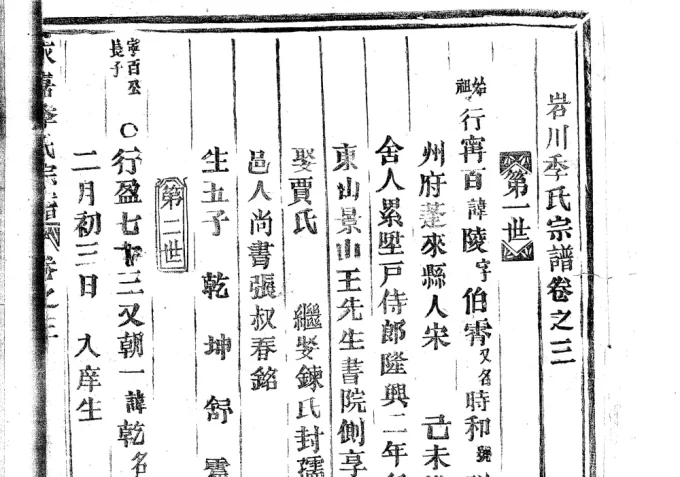 岩川季氏宗譜卷之三
第一世
始祖
行寗百諱陵字伯霄又名時和號
州府蓬來縣人宋 己未
舍人累陞戸侍郎隆興二年
東山景山王先生書院側享
娶賈氏 繼娶鍊氏封孺
邑人尚書張叔春銘
生五子 乾 坤 舒 霱
第二世
寗百公長子
○行盈七十三又朝一諱乾名
二月初三日 入庠生
季氏宗譜 卷之三